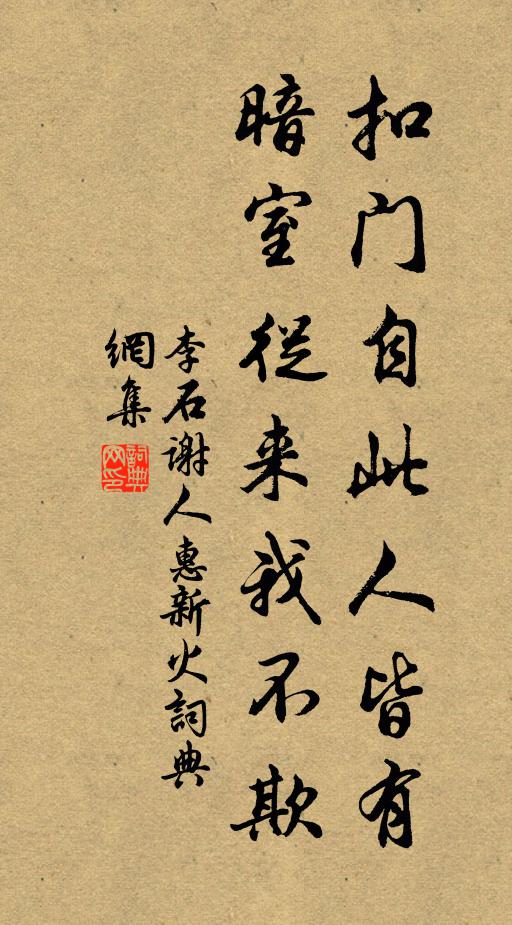 扣门自此人皆有
暗室從来我不欺
李石谢人惠新火詞典
網集
詞典网印